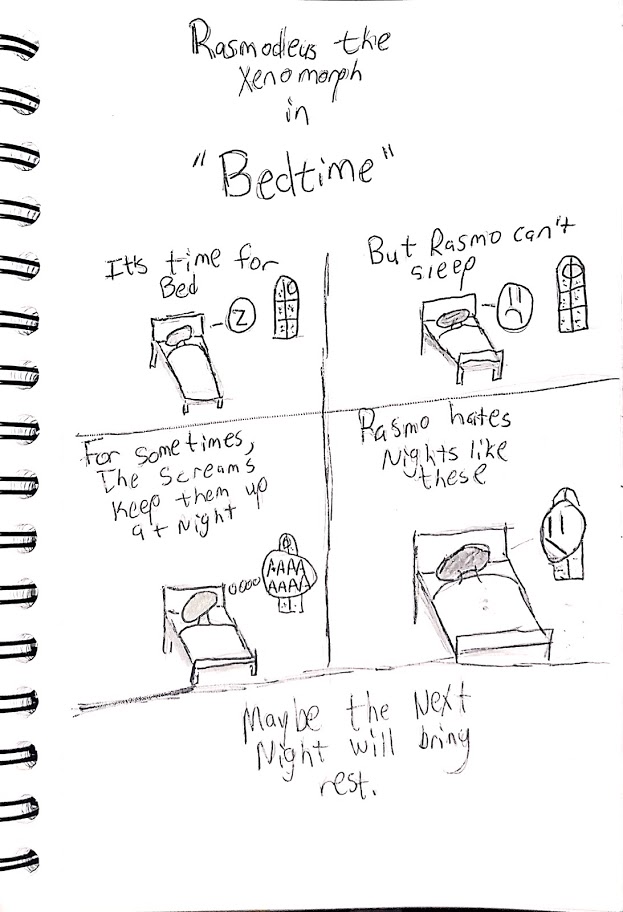 Rasmodeus the
Xenomorph
in
"Bedtime"
It's time for
Bed
Z
But Rasmo can't
sleep
For sometimes,
The Screams
Keep them up
at Night
AAAA
AAAA
Rasmo hates
Nights like
these
Maybe the Next
Night will bring
rest.